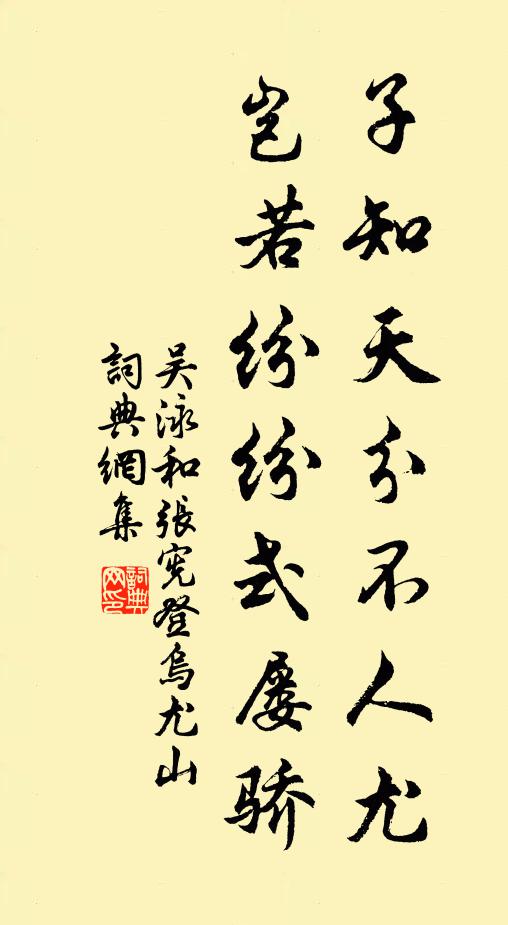 子知天分不人尤
岂若纷纷式屡骄
吴泳和張宪登烏尤山
詞典網集
詞典網印